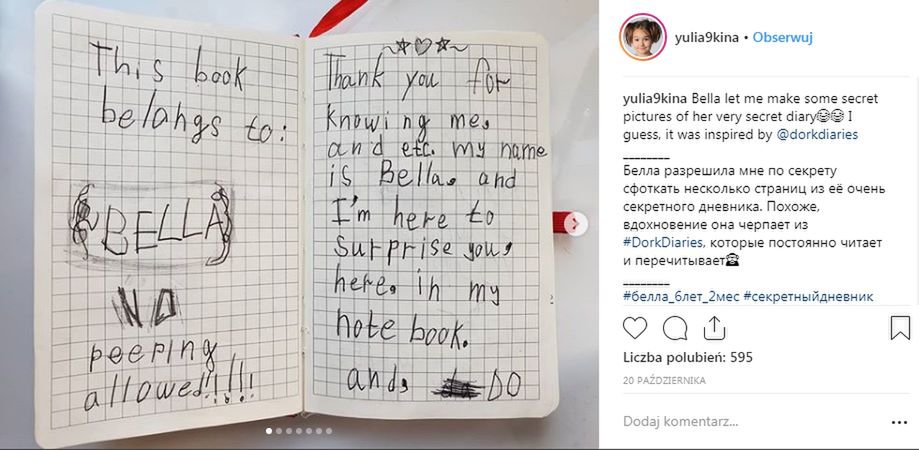 This book
belangs to:
BELLA
NO
peeping
allowed!!!!!
Thank you for
knowing me,
and etc. my name
is Bella, and
I'm here to
Surprise you,
here, in my
note book.
and, DO
yulia9kina • Obserwuj
yulia9kina Bella let me make some secret
pictures of her very secret diary😅😅 I
guess, it was inspired by @dorkdiaries
________
Белла разрешила мне по секрету
сфоткать несколько страниц из её очень
секретного дневника. Похоже,
вдохновение она черпает из
#DorkDiaries, которые постоянно читает
и перечитывает🙈
________
#белла_6лет_2мес #секретныйдневник
Liczba polubień: 595
20 PAŹDZIERNIKA
Dodaj komentarz...